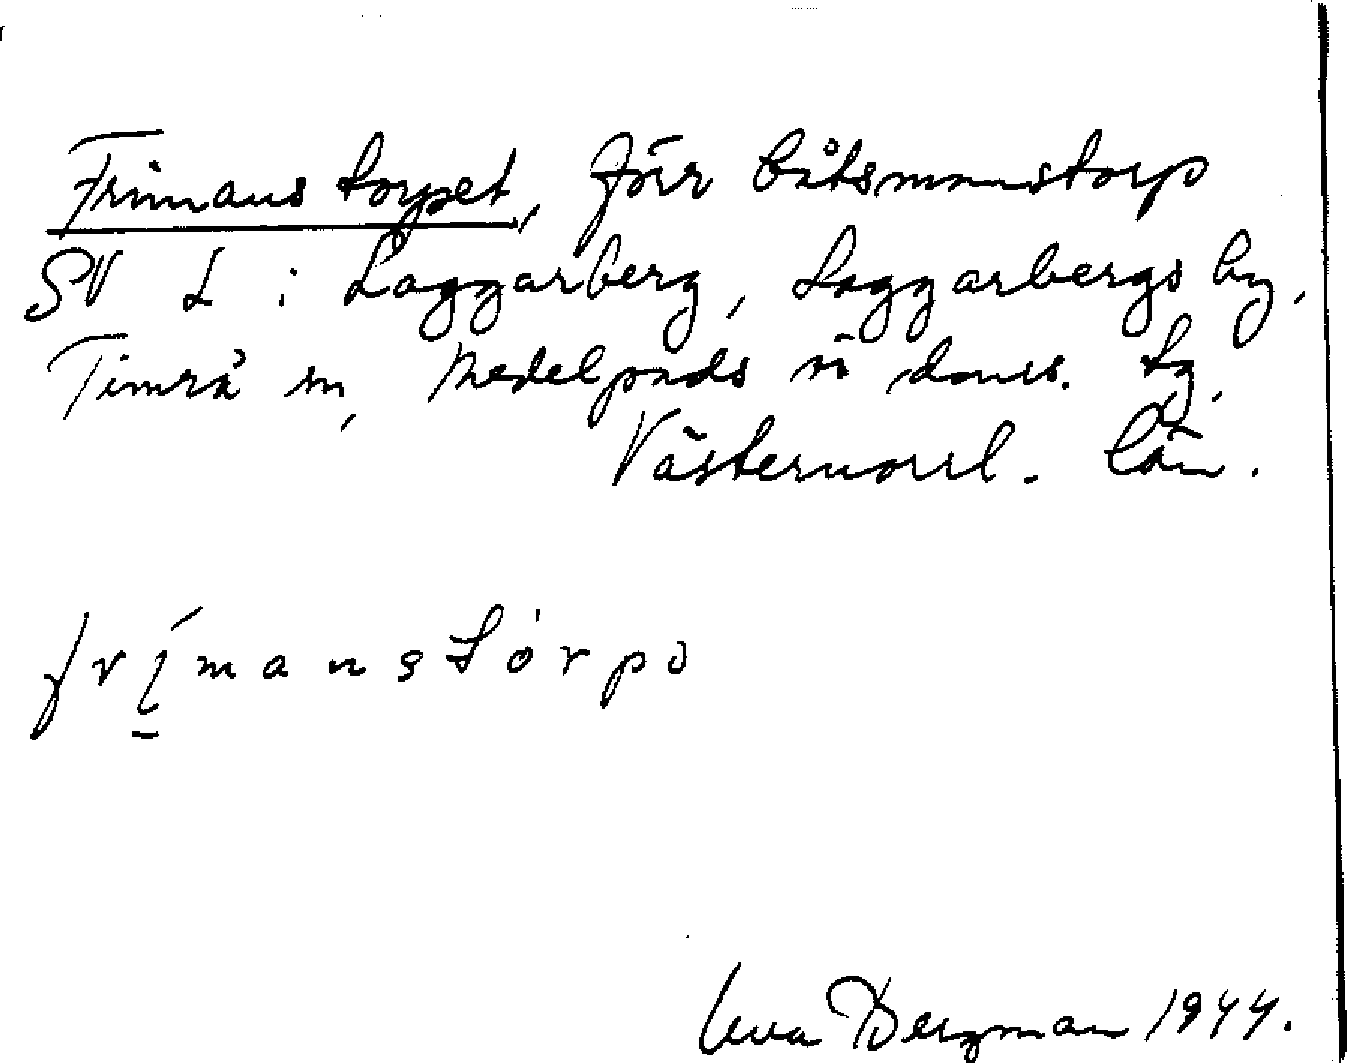 Frimans torpet, förr båtsmanstorp
SV L i Laggarberg, Laggarbergs by,
Timrå sn, Medelpads v doms. tg.
Västernorrl. län.
frímanstórpə
Bergman 1944.